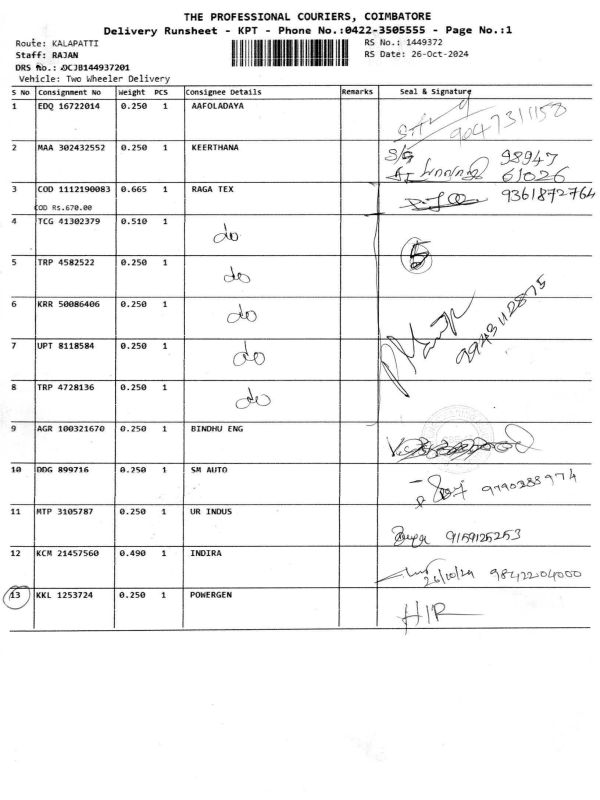 THE PROFESSIONAL COURIERS, COIMBATORE
Delivery Runsheet - KPT - Phone No.:0422-3505555 - Page No.:1
Route: KALAPATTI RS No.: 1449372
Staff: RAJAN RS Date: 26-Oct-2024
DRS No.: DCJB144937201
Vehicle: Two Wheeler Delivery
S No Consignment No Weight PCS Consignee Details Remarks Seal & Signature
1 EDQ 16722014 0.250 1 AAFOLADAYA
9047311158
2 MAA 302432552 0.250 1 KEERTHANA 98947
61026
3 COD 1112190083 0.665 1 RAGA TEX 9361872764
COD Rs.670.00
4 TCG 41302379 0.510 1 do 5
5 TRP 4582522 0.250 1 do
6 KRR 50086406 0.250 1 do
7 UPT 8118584 0.250 1 do
8 TRP 4728136 0.250 1 do
9 AGR 100321670 0.250 1 BINDHU ENG
10 DDG 899716 0.250 1 SM AUTO 9790388974
11 MTP 3105787 0.250 1 UR INDUS
9159125253
12 KCM 21457560 0.490 1 INDIRA
26/10/24 9842204000
13 KKL 1253724 0.250 1 POWERGEN
H/R